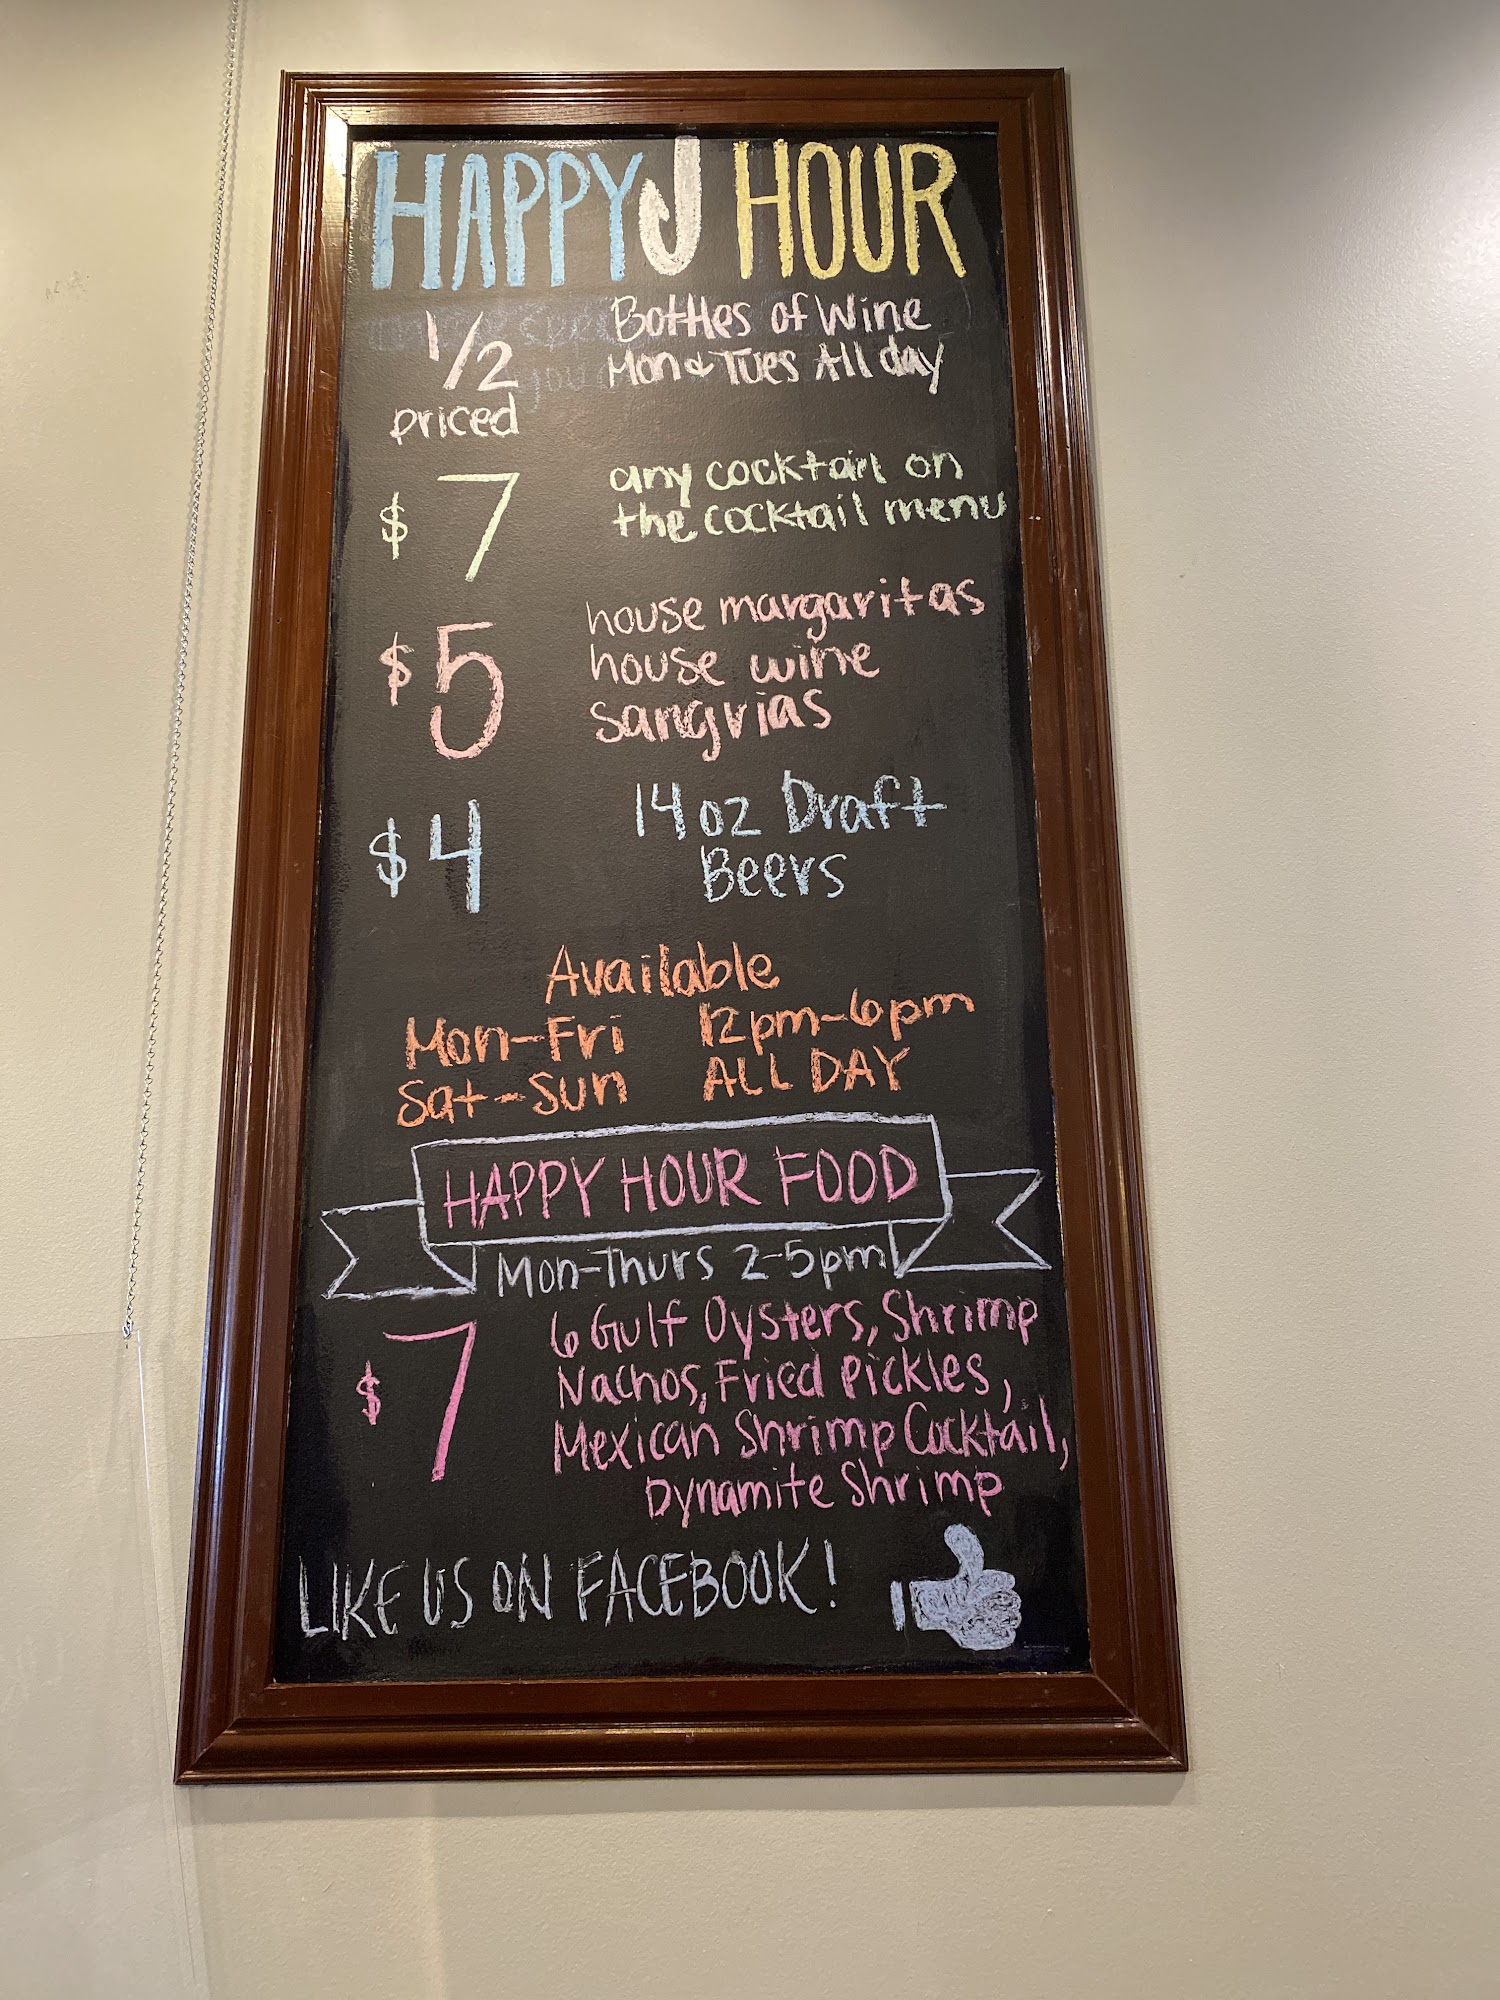 HAPPY HOUR
1/2 priced
Bottles of Wine
Mon & Tues All day
$7
any cocktail on
the cocktail menu
$5
house margaritas
house wine
sangrias
$4
14oz Draft
Beers
Available
Mon-Fri 12pm-6pm
Sat-Sun ALL DAY
HAPPY HOUR FOOD
Mon-Thurs 2-5pm
$7
6 Gulf Oysters, Shrimp
Nachos, Fried Pickles,
Mexican Shrimp Cocktail,
Dynamite Shrimp
LIKE US ON FACEBOOK!